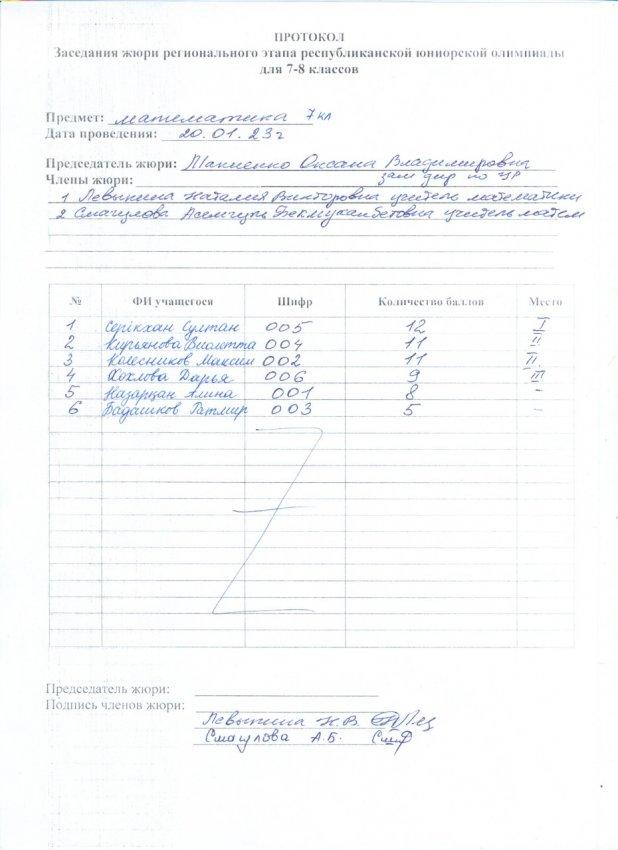 ПРОТОКОЛ
Заседания жюри регионального этапа республиканской юниорской олимпиады
для 7-8 классов
Предмет: математика 7 кл
Дата проведения: 20.01.23г
Председатель жюри: Оксана Владимировна
Члены жюри: зам дир по УР
1 Левыкина Наталия Викторовна учитель математики
2 Смагулова Асемгуль Бекмухамбетовна учитель матем
№ ФИ учащегося Шифр Количество баллов Место
1 Серікхан Султан 005 12 I
2 Курьянова Виолетта 004 11 II
3 Колесников Максим 002 11 II
4 Хохлова Дарья 006 9 III
5 Алина 001 8 -
6 Бадашков Ратмир 003 5 -
Председатель жюри:
Подпись членов жюри:
Левыкина Н.В.
Смагулова А.Б.